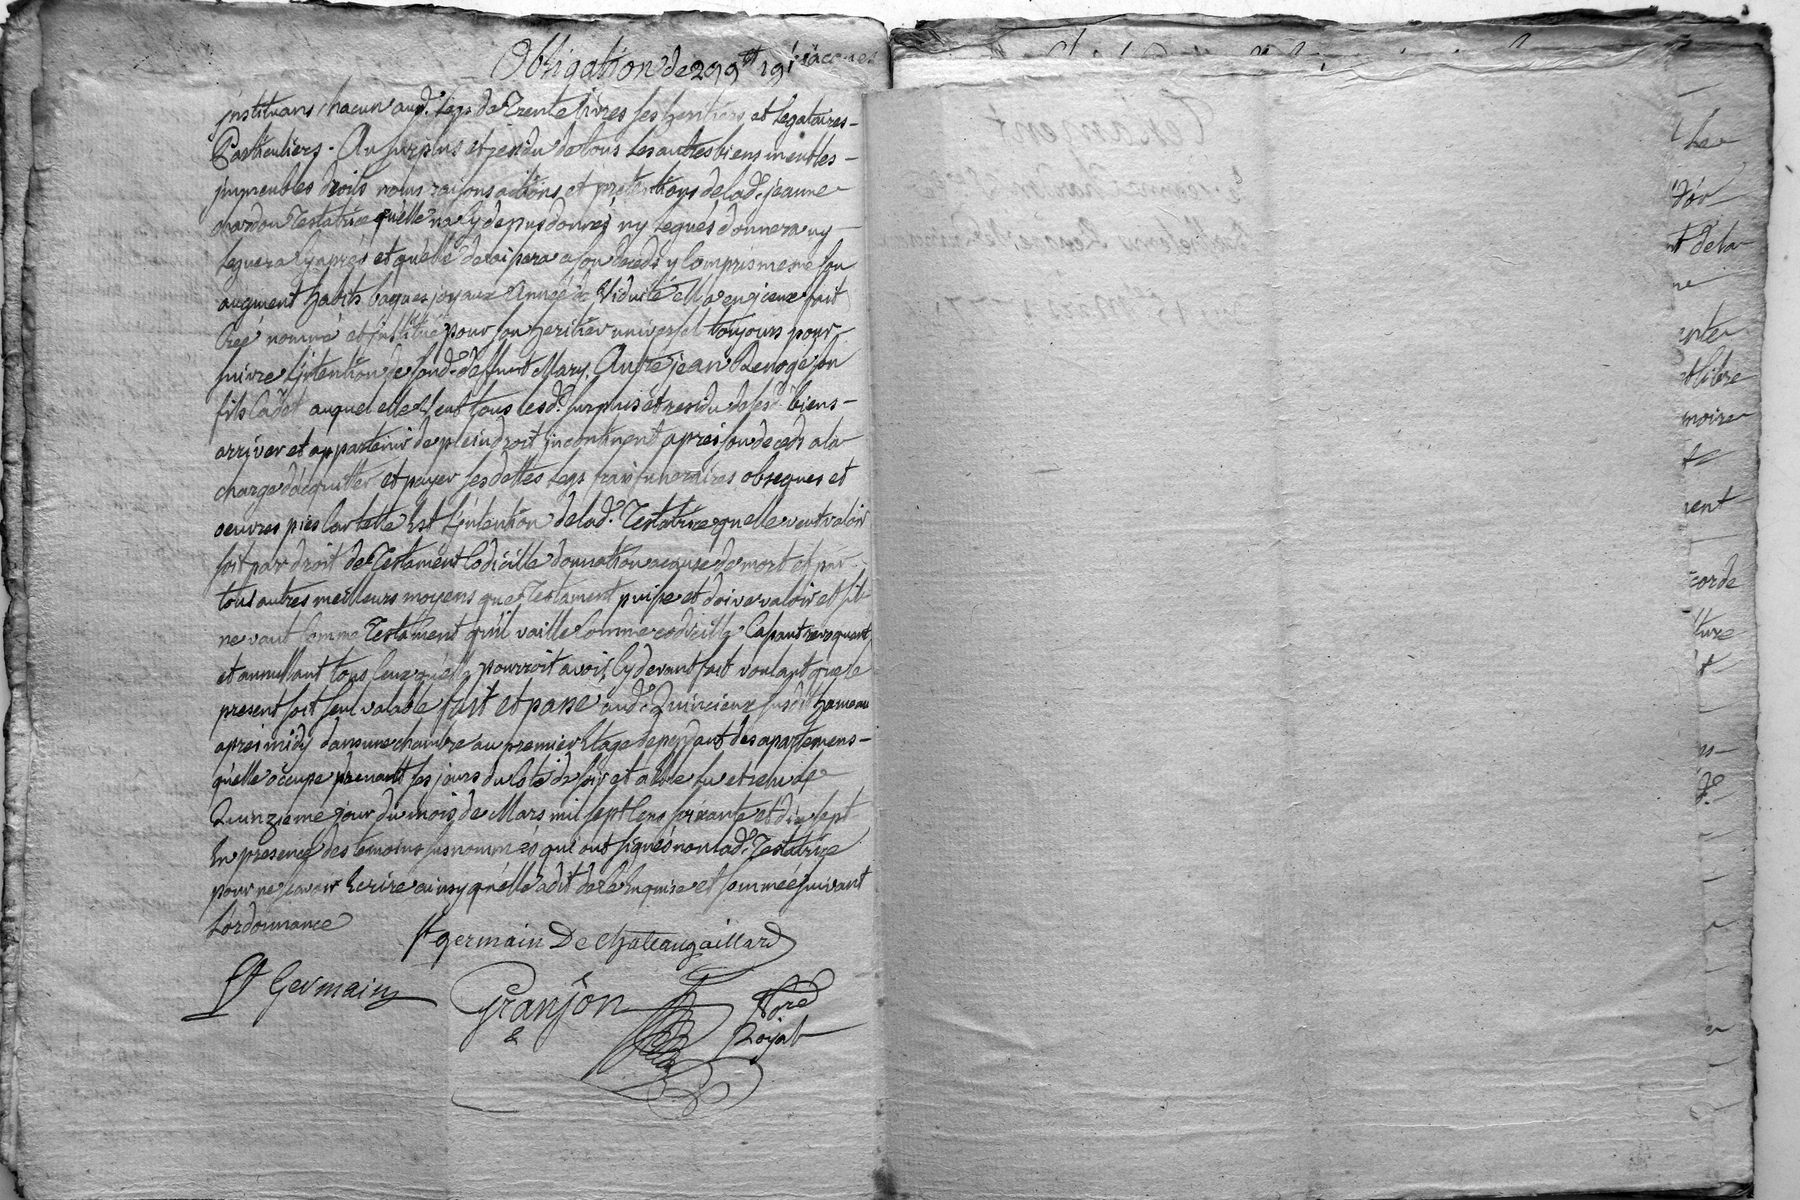 Obligation de 299tt 19s
instituans chacun aud. legs de Trente livres ses heritiers et legataires-
Particuliers. Au surplus et residu de tous les autres biens meubles-
jmmeubles droits noms raisons actions et pretentions de lad.e jeanne
chardon Testatrice qu'elle na cy depvs donnés ny legués donnera ny-
leguera cy après et qu'elle delaissera a son deceds y Compris mesme son
augment habits bagues joyaux Année de Viduité elle a en jceux fait
Créé nommé et jnstitué pour son heritier universel toujours pour
suivre L'jntention de fond. deffunt Mary, Autre jean Renoge son
fils Cadet auquel elle Veut tous lesd. surplus et residu de sesd. biens-
arriver et appartenir de plein droit jncontinent apres son deceds a la
charge d'acquitter et payer ses dettes legs frais funeraires obseques et
oeuvres pies Car telle Est L'jntention de lad.e Testatrice quelle veut valoir
soit par droit de Testament Codicille donnation acause de mort et par
tous autres meilleurs moyens que Testament puisse et doive valoir et sil
ne vaut Comme Testament qu'il vaille Comme codicille Cassant revoquant
et annullant tous Ceux qu'elle pourroit avoir Cy devant fait voulant que le
present soit seul valable fait et passé aud. Quincieux susdit hameau
apres midy dans une chambre au premier Etage dependant des apartemens-
qu'elle occupe prenant ses jours du Coté de soir et a elle lu et relu le
Quinzieme jour du mois de Mars mil sept Cens soixante et dix sept
En presence des temoins susnommés qui ont signés non lad.e Testatrice
pour ne scavoir Ecrire ainsy qu'elle a dit de ce Enquise et sommée suivant
L'ordonnance
st germain De chateaugaillard
St Germain
Granjon
Nore
Royal
Testament
nt dela
et libre
moire